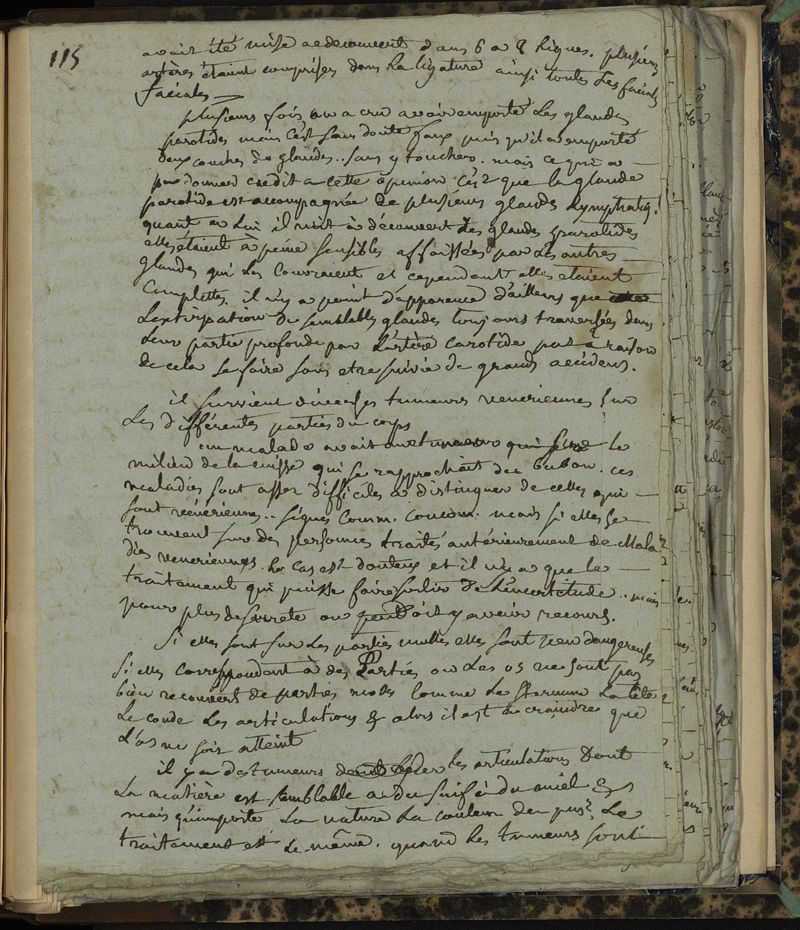 115
avait été mise a decouvert dans 6 a 8 lignes. plusieurs
artères étaient comprises dans la ligature ainsi toutes les faciales
faciales
plusieurs fois on a cru avoir emporté les glandes
parotides mais c'est sans doute faux puis qu'il a emporté
deux couches de glandes.. sans y toucher. mais ce qui a
pu donner credit a cette opinion c'est que la glande
parotide est accompagnée de plusieurs glandes lymphatiq.
quant a lui il mit à découvert les glandes parotides
elles étaient à peine sensibles affaissées par les autres
glandes qui les couvraient et cependant elles etaient
complettes. il n'y a point d'apparence d'ailleurs que
l'extirpation de semblables glandes toujours traversées dans
leur partie profonde par l'artère carotide put a raison
de cela se faire sans etre suivie de grands accidens.
il survient diverses tumeurs veneriennes sur
les différentes parties du corps
un malade avait une tumeur qui sur le
milieu de la cuisse qui se rapprochait du bubon. ces
maladies sont assez difficiles a distinguer de celles qui
sont vénériennes.. signes comm. mais si elles se
trouvent sur des personnes traités antérieurement de mala
dies veneriennes. le cas est douteux et il n'y a que le
traitement qui puisse faire sortir de l'incertitude.. mais
pour plus de sureté on doit y avoir recours.
Si elles sont sur les parties molles elles sont peu dangereuses
si elles correspondent à des Parties ou les os ne sont pas
bien recouverts de parties molles comme le sternum la tête
le coude les articulations & alors il est a craindre que
l'os ne soit atteint
il y a des tumeurs les articulations dont
la matière est semblable a du suif à du miel &
mais qu'importe la nature la couleur du pus. le
traitement est le même. quand les tumeurs sont